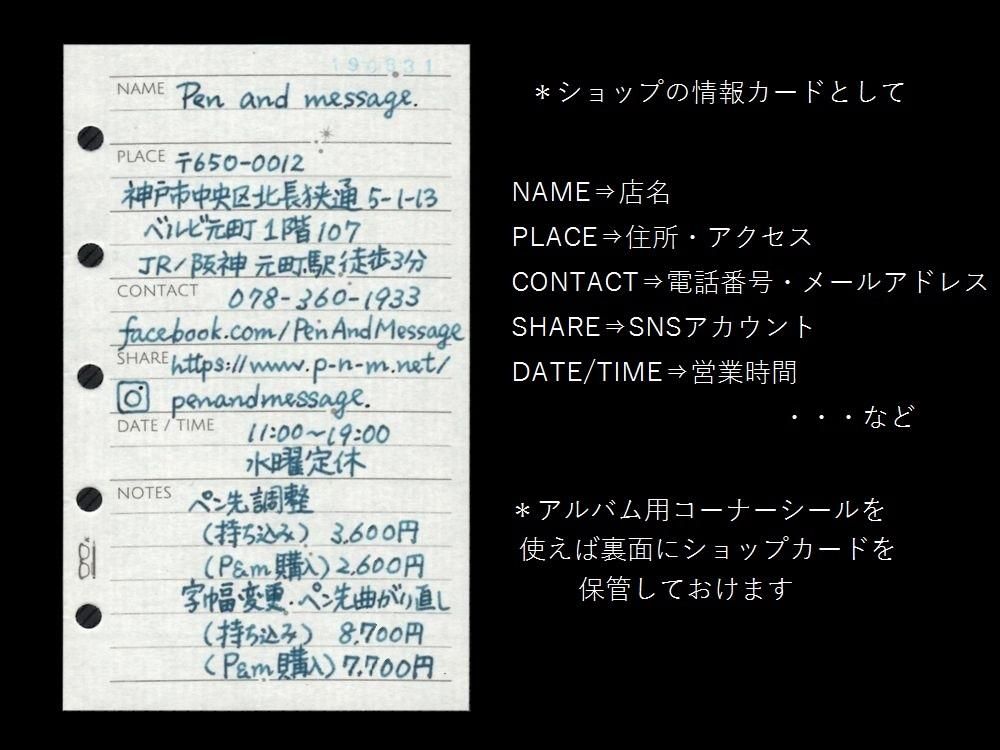 190831
NAME Pen and message.
PLACE 〒650-0012
神戸市中央区北長狭通 5-1-13
ベルビ元町 1階107
JR/阪神 元町駅 徒歩3分
CONTACT 078-360-1933
facebook.com/PenAndMessage
SHARE https://www.p-n-m.net/
penandmessage.
DATE / TIME 11:00~19:00
水曜定休
NOTES ペン先調整
(持ち込み) 3,600円
(P&m購入) 2,600円
字幅変更・ペン先曲がり直し
(持ち込み) 8,700円
(P&m購入) 7,700円
＊ショップの情報カードとして
NAME⇒店名
PLACE⇒住所・アクセス
CONTACT⇒電話番号・メールアドレス
SHARE⇒SNSアカウント
DATE/TIME⇒営業時間
・・・など
＊アルバム用コーナーシールを
使えば裏面にショップカードを
保管しておけます